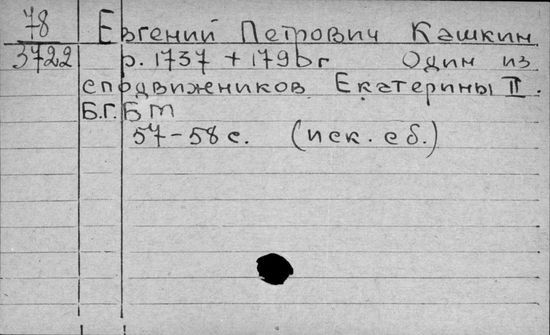 78 Евгений Петрович Кашкин
3722 р. 1737 + 1796 г Один из
сподвижников Екатерины II.
Б.Г. БМ
57-58 с. (иск. сб.)